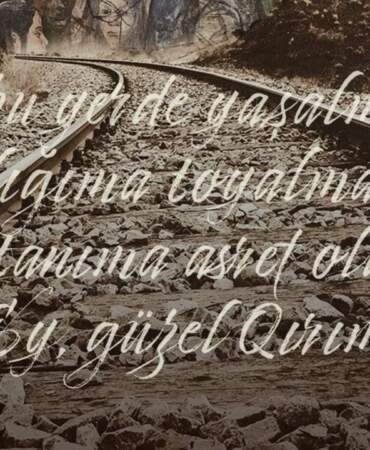 bu yerde yaşalm
lığıma toyalma
tanıma asret ol
Ey, güzel Qırım